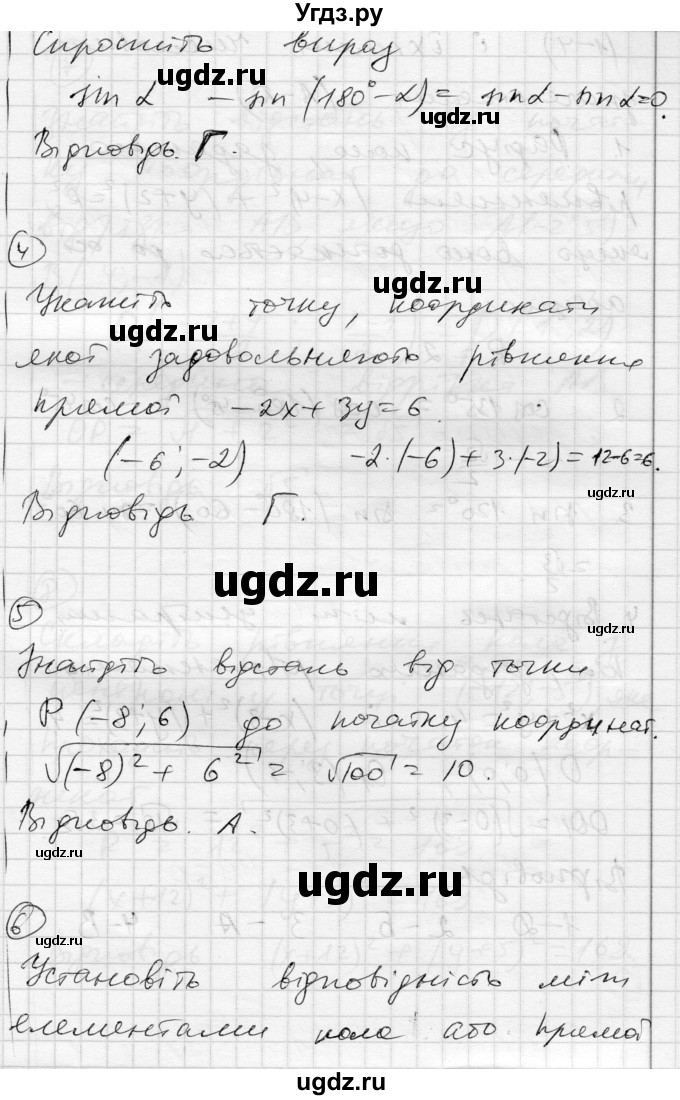 Угдз.ру
Спростіть вираз
sin α - sin (180° - α) = sin α - sin α = 0.
Відповідь. Г.
4
Укажіть точку, координати
якої задовольняють рівняння
прямої -2x + 3y = 6.
(-6; -2) -2·(-6) + 3·(-2) = 12-6=6.
Відповідь Г.
5
Знайдіть відстань від точки
P (-8; 6) до початку координат.
√(-8)² + 6² = √100 = 10.
Відповідь. А.
6
Установіть відповідність між
елементами кола або прямої
ugdz.ru
ugdz.ru
ugdz.ru
ugdz.ru
ugdz.ru
ugdz.ru
ugdz.ru
ugdz.ru
ugdz.ru
ugdz.ru
ugdz.ru
ugdz.ru